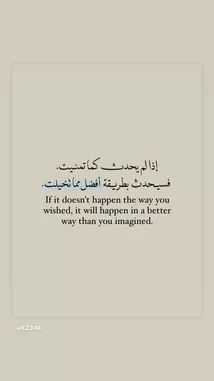 إذا لم يحدث كما تمنيت،
فسيحدث بطريقة أفضل مما تخيلت.
If it doesn't happen the way you
wished, it will happen in a better
way than you imagined.
@t234k